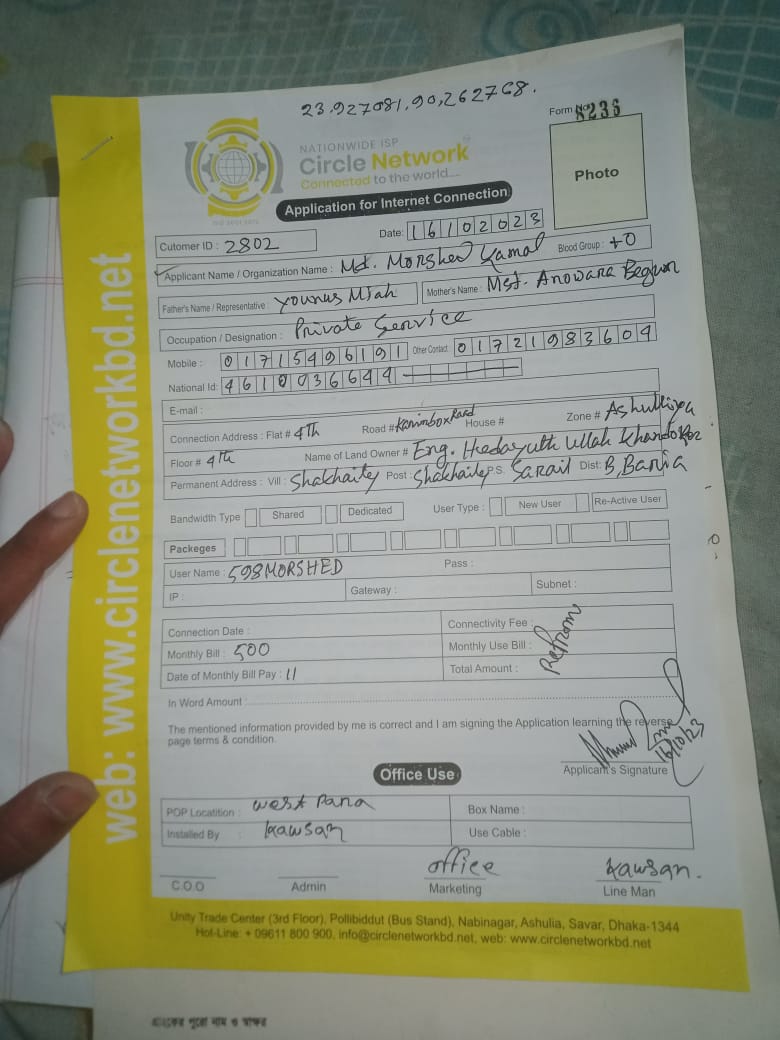 23.927081, 90,262768.
Form No. 8236
NATIONWIDE ISP
Circle Network
Connected to the world....
Photo
Application for Internet Connection
Cutomer ID : 2802
Date: 16102023
Applicant Name / Organization Name : Md. Morshed Kamal Blood Group : +O
Father's Name / Representative : Younus Miah Mother's Name : Mst. Anowara Begum
Occupation / Designation : Private Service
Mobile : 01715496191 Other Contact 01721983604
National Id: 4610036644
E-mail :
Connection Address : Flat # 4TH Road # Karimbox Road House # Zone # Ashuliya
Floor # 4th Name of Land Owner # Eng. Hedayuth Ullah Khandokar
Permanent Address : Vill : Shakhaity Post : Shakhaity P.S. Sarail Dist: B,Baria
Bandwidth Type Shared Dedicated User Type : New User Re-Active User
Packeges
User Name : 598MORSHED Pass :
IP : Gateway : Subnet :
Connection Date : Connectivity Fee :
Monthly Bill : 500 Monthly Use Bill :
Date of Monthly Bill Pay : 11 Total Amount :
In Word Amount :
The mentioned information provided by me is correct and I am signing the Application learning the reverse
page terms & condition.
16/10/23
Applicant's Signature
Office Use
POP Locatition : west Para Box Name :
Installed By : Kawsar Use Cable :
office Kawsar.
C.O.O Admin Marketing Line Man
Unity Trade Center (3rd Floor), Pollibiddut (Bus Stand), Nabinagar, Ashulia, Savar, Dhaka-1344
Hot-Line: + 09611 800 900, info@circlenetworkbd.net, web: www.circlenetworkbd.net
web: www.circlenetworkbd.net
গ্রাহকের পুরো নাম ও স্বাক্ষর